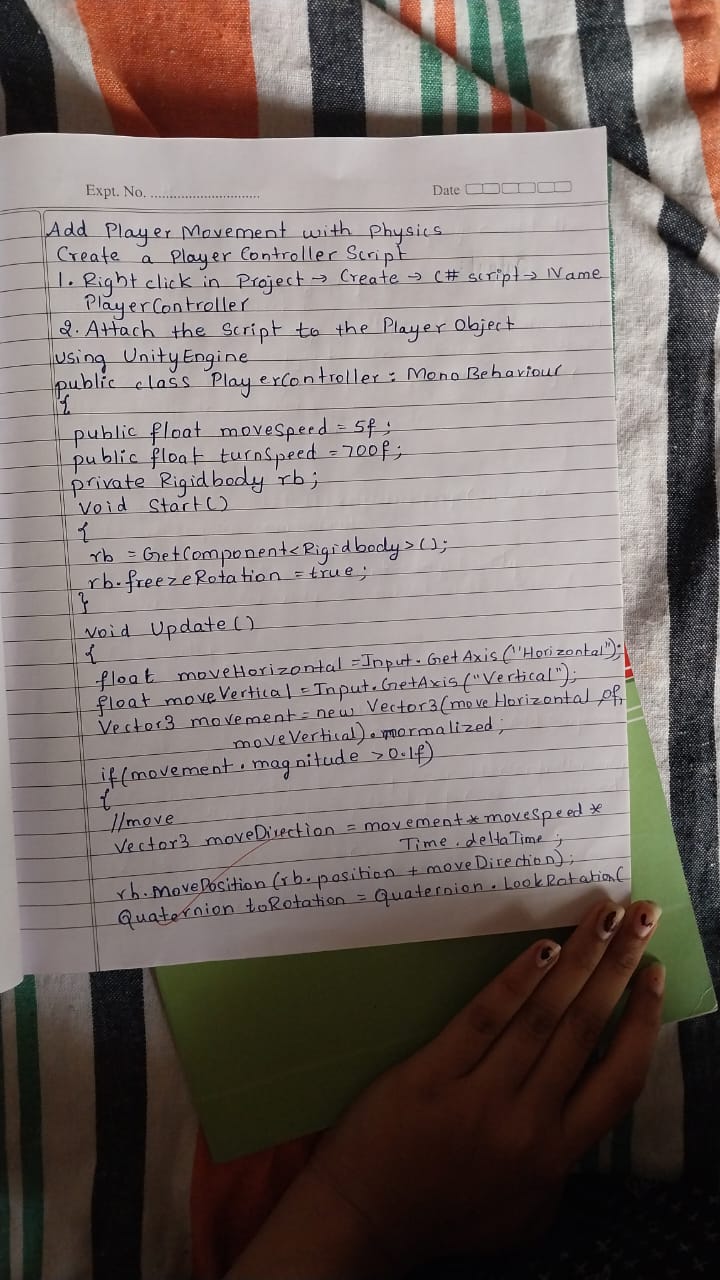 Expt. No. ..............................
Date
Add Player Movement with Physics
Create a Player Controller Script
1. Right click in Project → Create → C# script → Name
PlayerController
2. Attach the Script to the Player Object
using UnityEngine
public class PlayerController : MonoBehaviour
{
public float moveSpeed = 5f;
public float turnSpeed = 700f;
private Rigidbody rb;
void Start()
{
rb = GetComponent<Rigidbody>();
rb.freezeRotation = true;
}
void Update()
{
float moveHorizontal = Input.GetAxis("Horizontal");
float moveVertical = Input.GetAxis("Vertical");
Vector3 movement = new Vector3(moveHorizontal, 0f,
moveVertical).normalized;
if(movement.magnitude > 0.1f)
{
//move
Vector3 moveDirection = movement * moveSpeed *
Time.deltaTime;
rb.MovePosition(rb.position + moveDirection);
Quaternion toRotation = Quaternion.LookRotation(